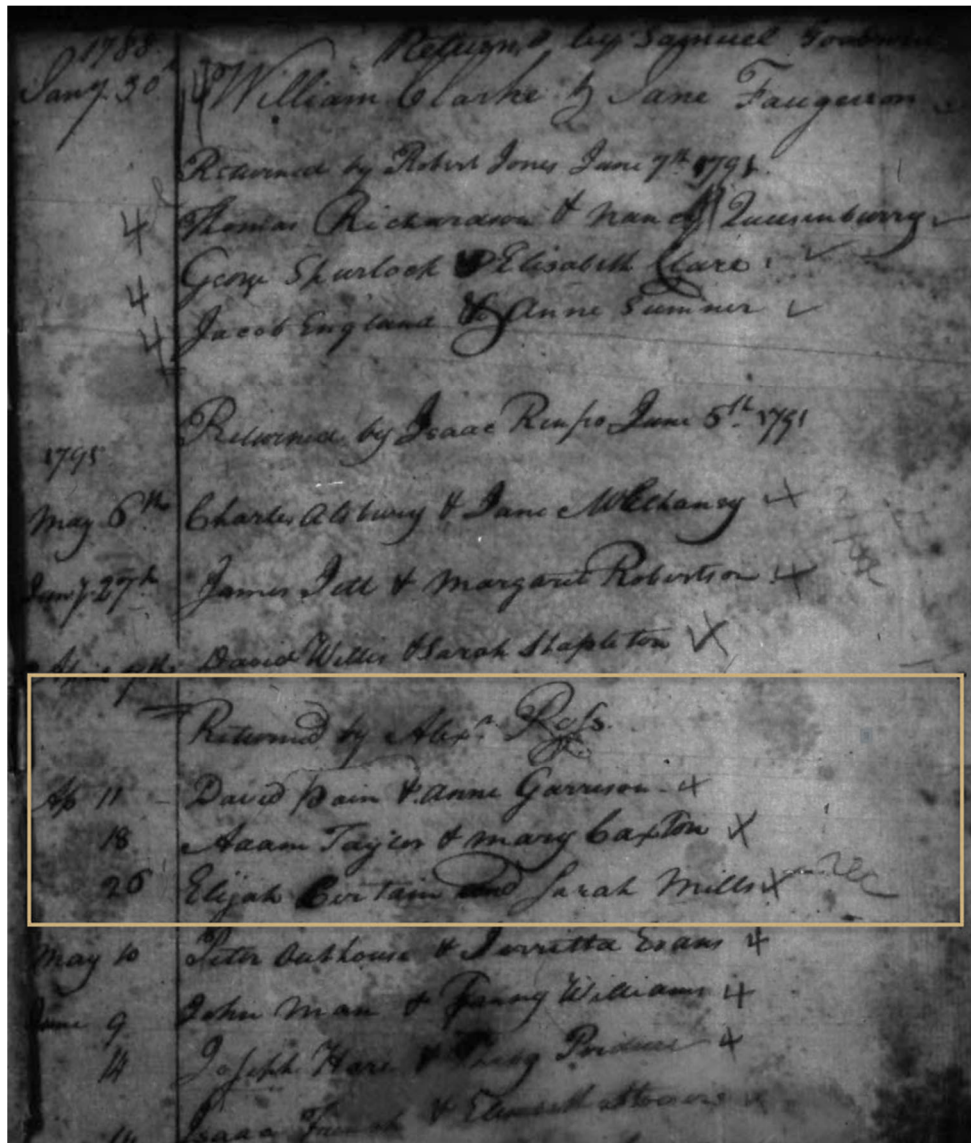 1788 Returned by Samuel
Jany. 30 William Clarke & Jane Faugerson
Returned by Robert Jones June 7th 1791
4 Thomas Richardson & Nancy Queesenburry
4 George Spurlock & Elisabeth Clare
4 Jacob England & Anne Sumner
Returned by Isaac Renfro June 5th 1791
1791
May 6th Charles Alsbury & Jane McElhaney
Jany. 27th James Jett & Margaret Robertson
David Willis & Sarah Stapleton
Returned by Alexr. Ross
Ap 11 David Pain & Anne Garrison
18 Adam Taylor & Mary Caxton
26 Elijah Certain and Sarah Mills
May 10 Peter Outhouse & Evans
June 9 John Man & Fanny Williams
14 Joseph Hare &
Isaac &